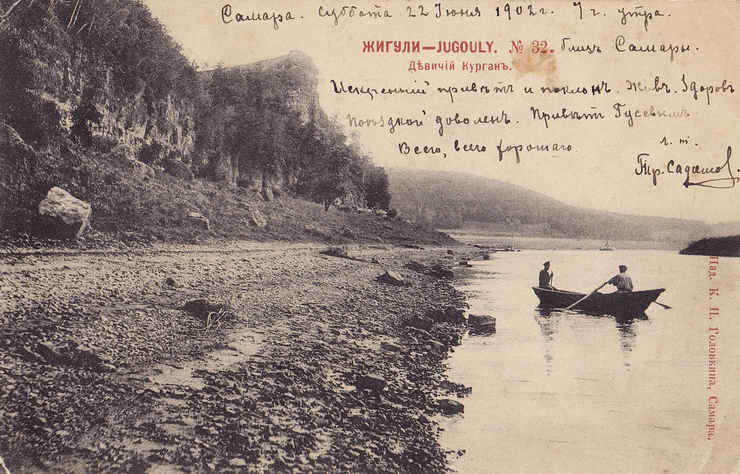 Самара. Суббота 22 Іюня 1902 г. 7 г. утра.
ЖИГУЛИ—JUGOULY. № 32. близъ Самары.
Дѣвичій Курганъ.
Искренній привѣтъ и поклонъ. Живъ. Здоровъ
Поѣздкой доволенъ. Привѣтъ Гусевымъ
Всего, всего хорошаго.
Изд. К. П. Головкина, Самара.